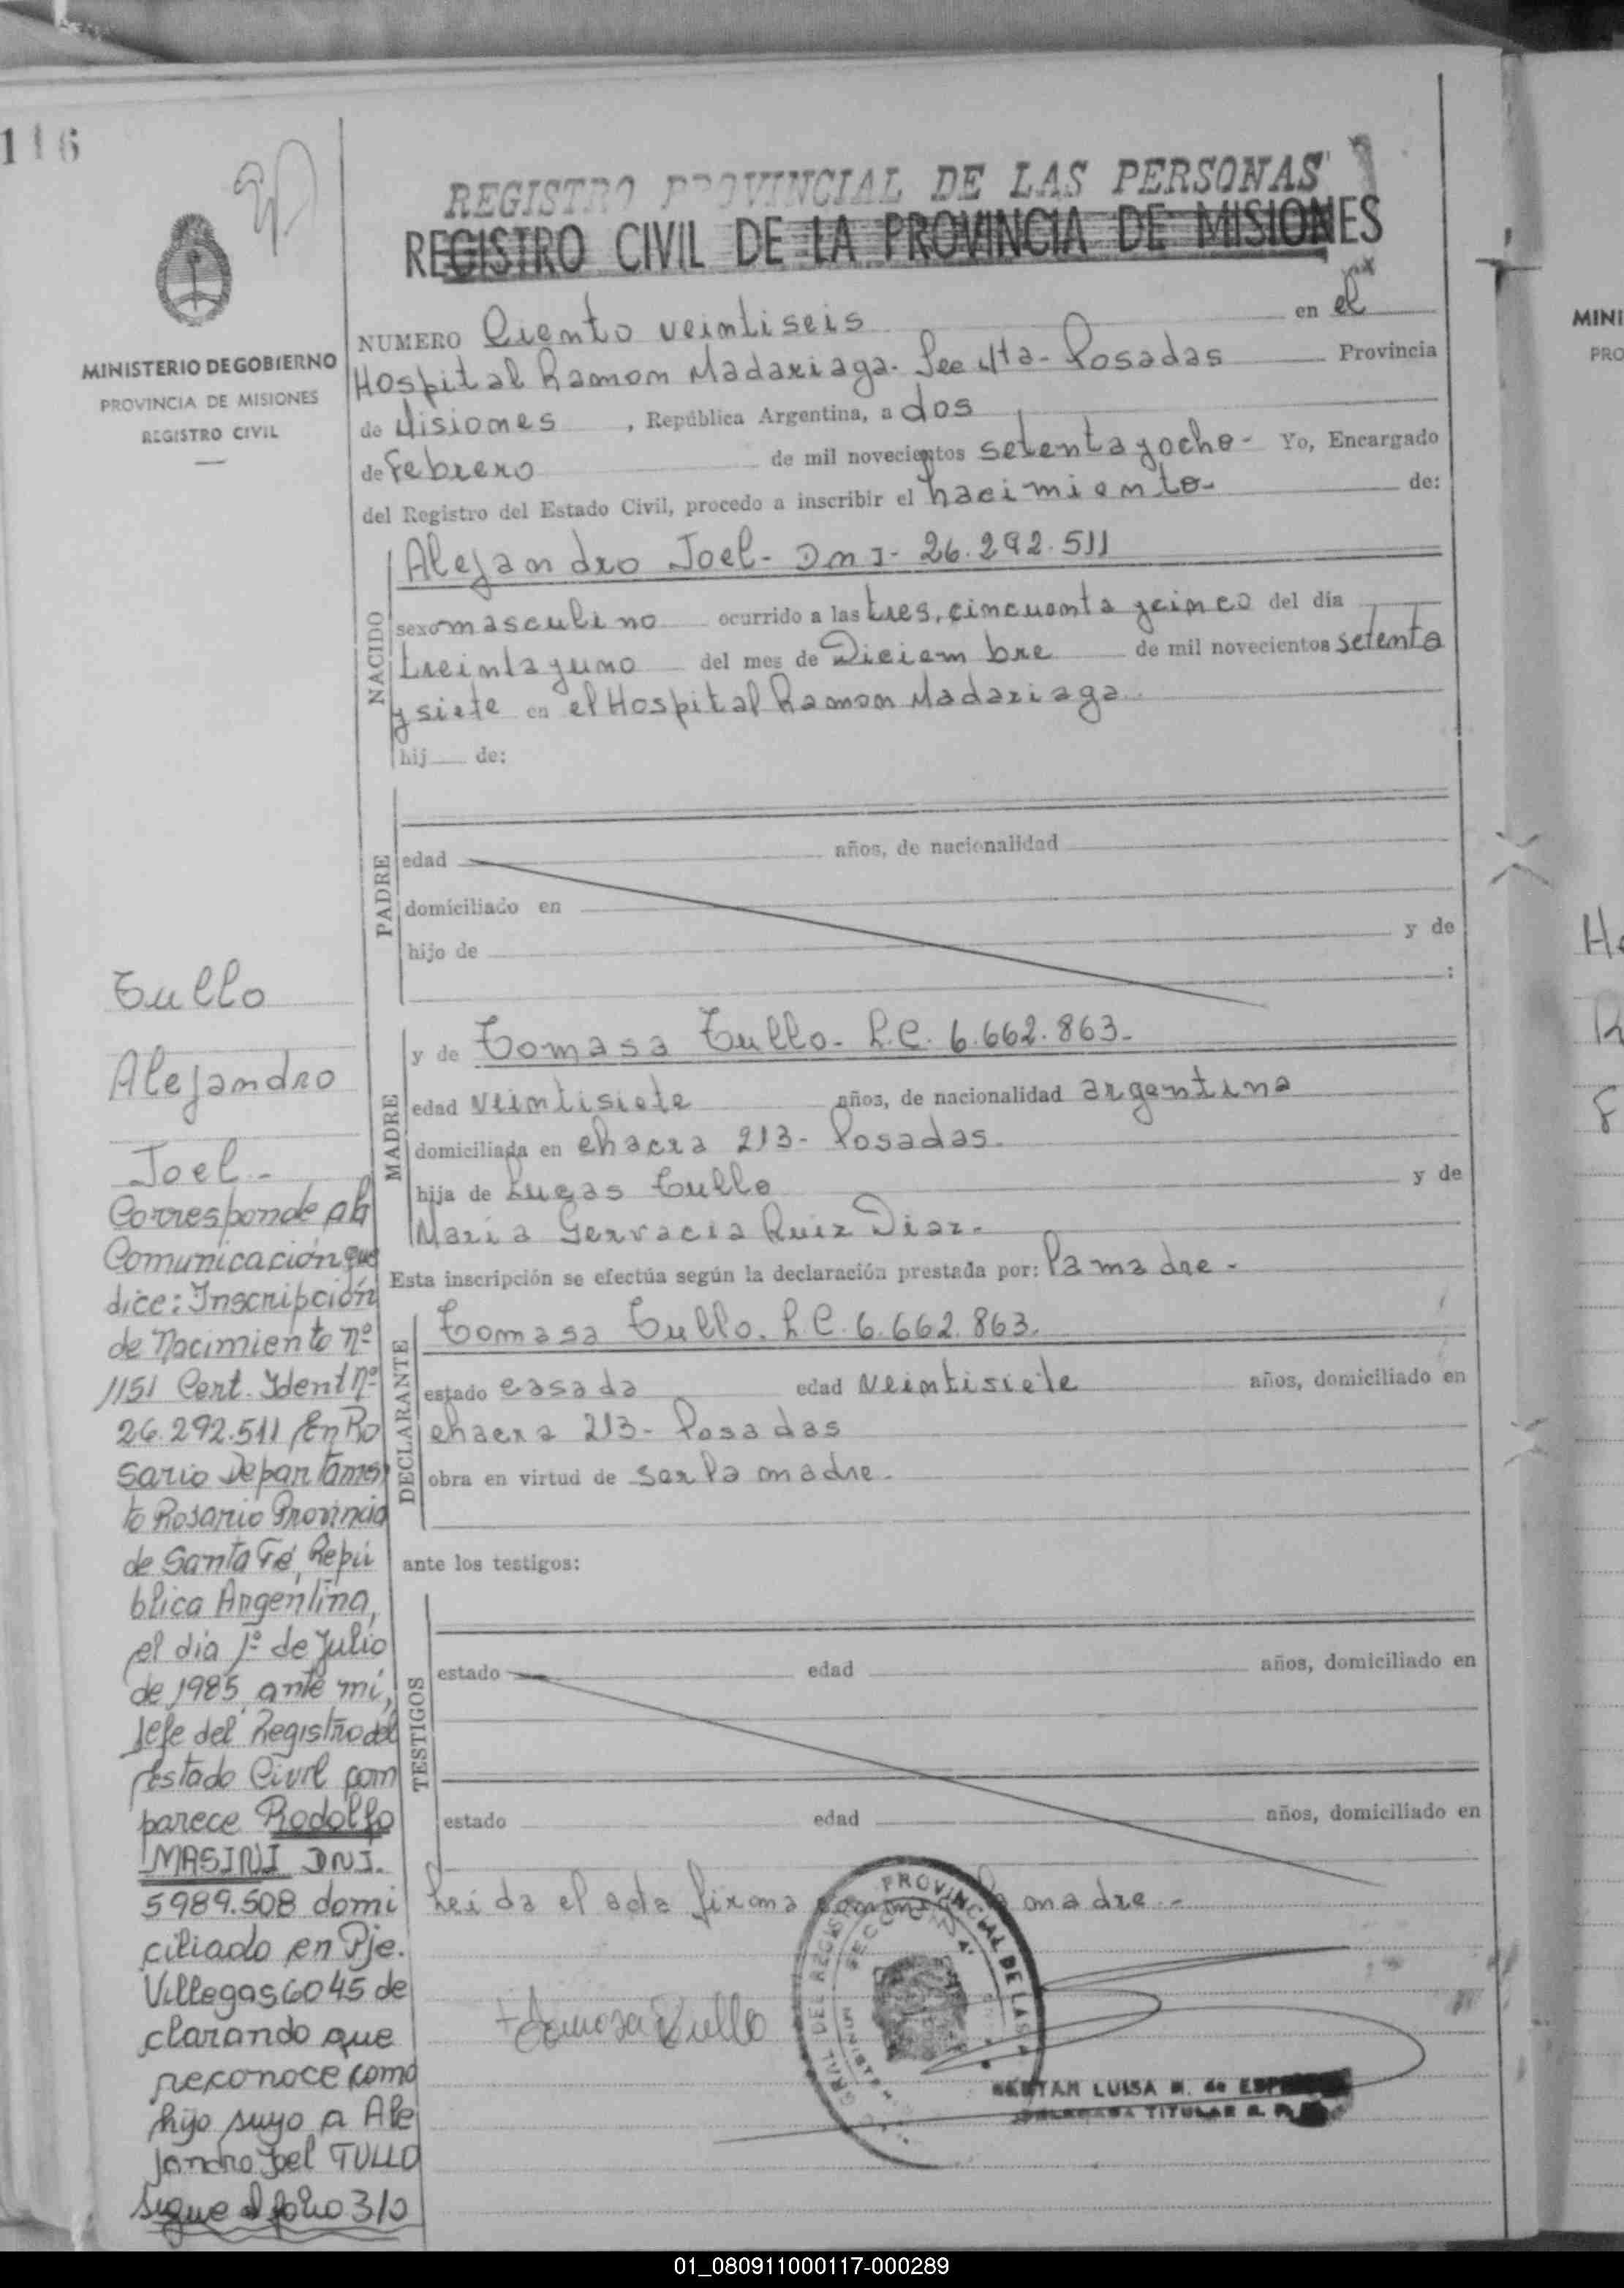 116
REGISTRO PROVINCIAL DE LAS PERSONAS
REGISTRO CIVIL DE LA PROVINCIA DE MISIONES
MINISTERIO DE GOBIERNO
PROVINCIA DE MISIONES
REGISTRO CIVIL
NUMERO Ciento veintiseis en el
Hospital Ramon Madariaga. Sec 4ta - Posadas Provincia
de Misiones , República Argentina, a dos
de Febrero de mil novecientos setenta y ocho - Yo, Encargado
del Registro del Estado Civil, procedo a inscribir el nacimiento - de:
NACIDO
Alejandro Joel - DNI - 26.292.511
sexo masculino ocurrido a las tres, cincuenta y cinco del día
treinta y uno del mes de Diciembre de mil novecientos setenta
y siete en el Hospital Ramon Madariaga
hij de:
PADRE
edad años, de nacionalidad
domiciliado en
hijo de y de
:
MADRE
y de Tomasa Tullo - L.C. 6.662.863 -
edad veintisiete años, de nacionalidad argentina
domiciliada en chacra 213 - Posadas -
hija de Lucas Tullo y de
Maria Gervacia Ruiz Diaz -
Esta inscripción se efectúa según la declaración prestada por: la madre -
DECLARANTE
Tomasa Tullo. L.C. 6.662.863.
estado casada edad veintisiete años, domiciliado en
chacra 213 - Posadas
obra en virtud de ser la madre -
ante los testigos:
TESTIGOS
estado edad años, domiciliado en
estado edad años, domiciliado en
Leida el acta firma conmigo la madre -
Tomasa Tullo
PROVINCIAL DE LAS
GRAL DEL REGIS
LUISA M. de
TITULAR
Tullo
Alejandro
Joel -
Corresponde a la
Comunicación que
dice: Inscripción
de Nacimiento Nº
1151 Cert. Ident Nº
26.292.511 En Ro
sario Departamen
to Rosario Provincia
de Santa Fé, Repú
blica Argentina,
el día 1º de Julio
de 1985 ante mí,
Jefe del Registro del
Estado Civil com
parece Rodolfo
MASINI DNI.
5989.508 domi
ciliado en Pje.
Villegas 6045 de
clarando que
reconoce como
hijo suyo a Ale
jandro Joel TULLO
sigue al folio 310
MINI
PRO
01_080911000117-000289